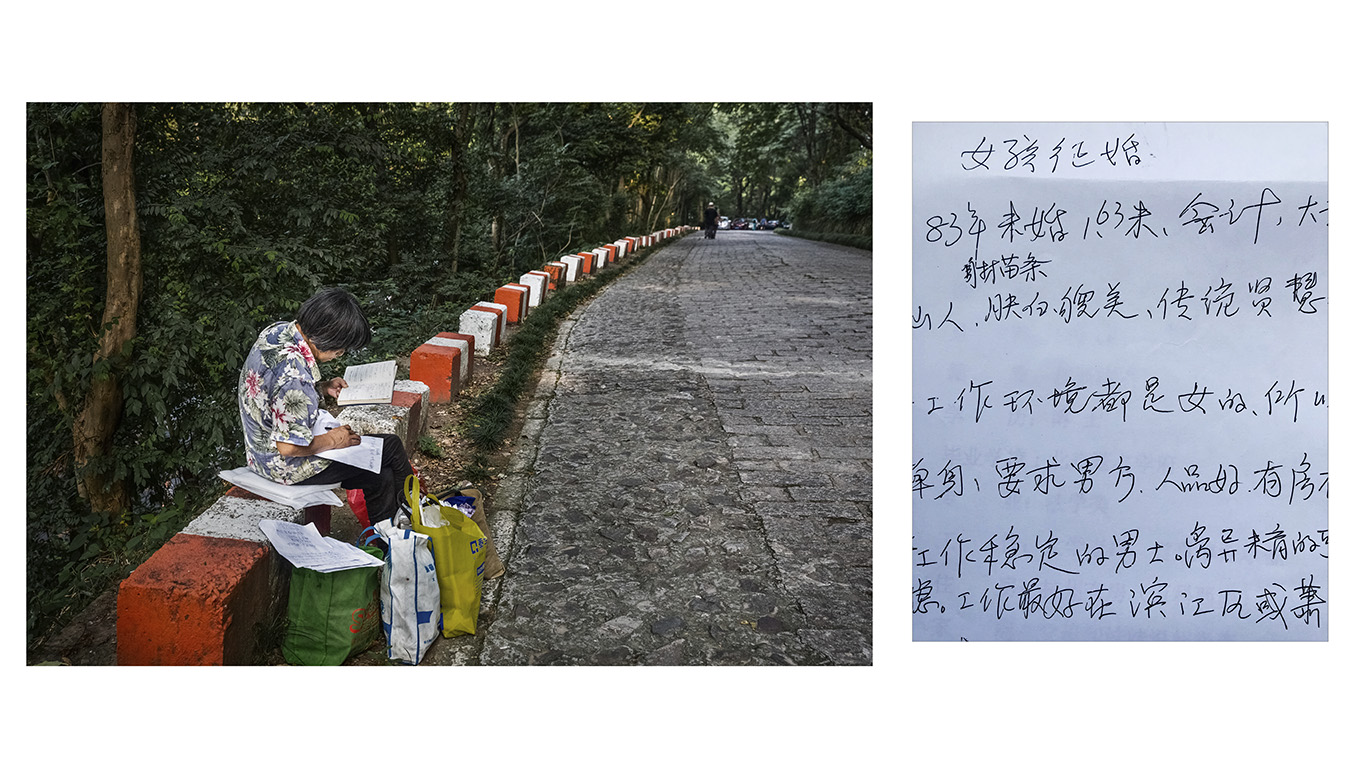 女孩征婚
83年未婚 1.63米、会计，大
身材苗条
山人.肤白貌美、传统贤慧
工作环境都是女的、所以
单身、要求男方.人品好.有房
工作稳定的男士。离异未育的
虑。工作最好在滨江区或萧